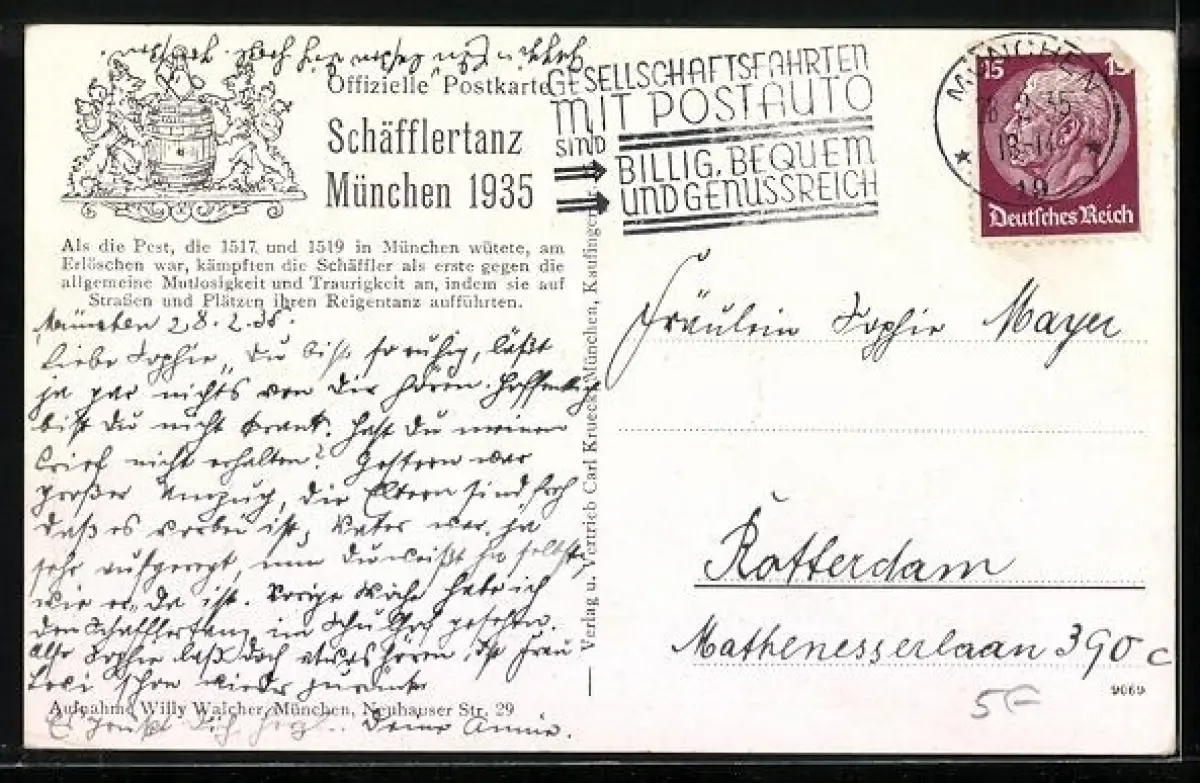 Offizielle Postkarte
Schäfflertanz
München 1935
Als die Pest, die 1517 und 1519 in München wütete, am
Erlöschen war, kämpften die Schäffler als erste gegen die
allgemeine Mutlosigkeit und Traurigkeit an, indem sie auf
Straßen und Plätzen ihren Reigentanz aufführten.
München 28.2.35.
Liebe Sophie, Du bist so ruhig, läßt
ja gar nichts von Dir hören. Hoffentlich
bist Du nicht krank. Hast Du meinen
Brief nicht erhalten? Gestern war
großer Umzug, die Eltern sind froh
daß es vorbei ist, Vater war ja
sehr aufgeregt, nun Du weißt ja selbst,
wie er da ist. Vorige Woche habe ich
den Schäfflertanz im gesehen.
Also Sophie laß doch etwas hören, ist Frau
schon wieder zurück
Aufnahme Willy Walcher, München, Neuhauser Str. 29
Es grüßt Dich Deine Annie.
Verlag u. Vertrieb Carl Krueck, München, Kaufinger
GESELLSCHAFTSFAHRTEN
MIT POSTAUTO
SIND
BILLIG, BEQUEM
UND GENUSSREICH
MÜNCHEN
2.35
18-
19
15 15
Deutsches Reich
Fräulein Sophie Mayer
Rotterdam
Mathenesserlaan 390 c
9069